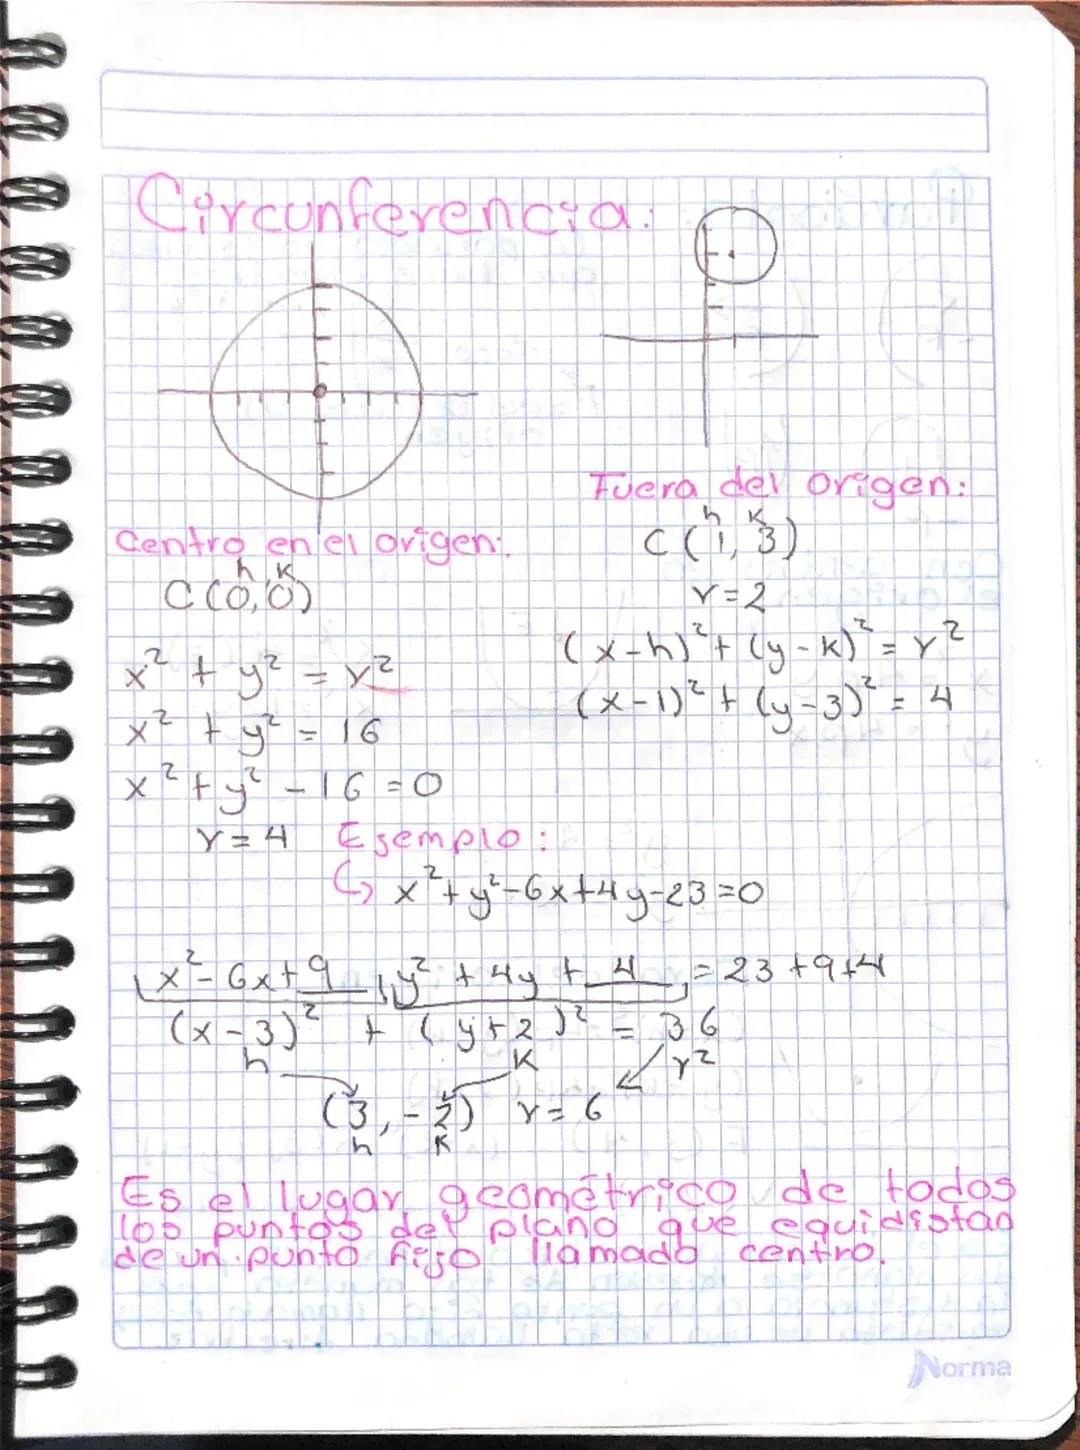 Circunferencia:
Centro en el origen:
h k
C (0,0)
x² + y² = r²
x² + y² = 16
x² + y² - 16 = 0
r = 4
Fuera del origen:
h k
C (1, 3)
r = 2
(x-h)² + (y-k)² = r²
(x-1)² + (y-3)² = 4
Ejemplo:
↳ x² + y² - 6x + 4y - 23 = 0
x² - 6x + 9 + y² + 4y + 4 = 23 + 9 + 4
(x-3)² + (y+2)² = 36
h k r²
(3, -2) r = 6
h k
Es el lugar geométrico de todos
los puntos del plano que equidistan
de un punto fijo llamado centro.
Norma